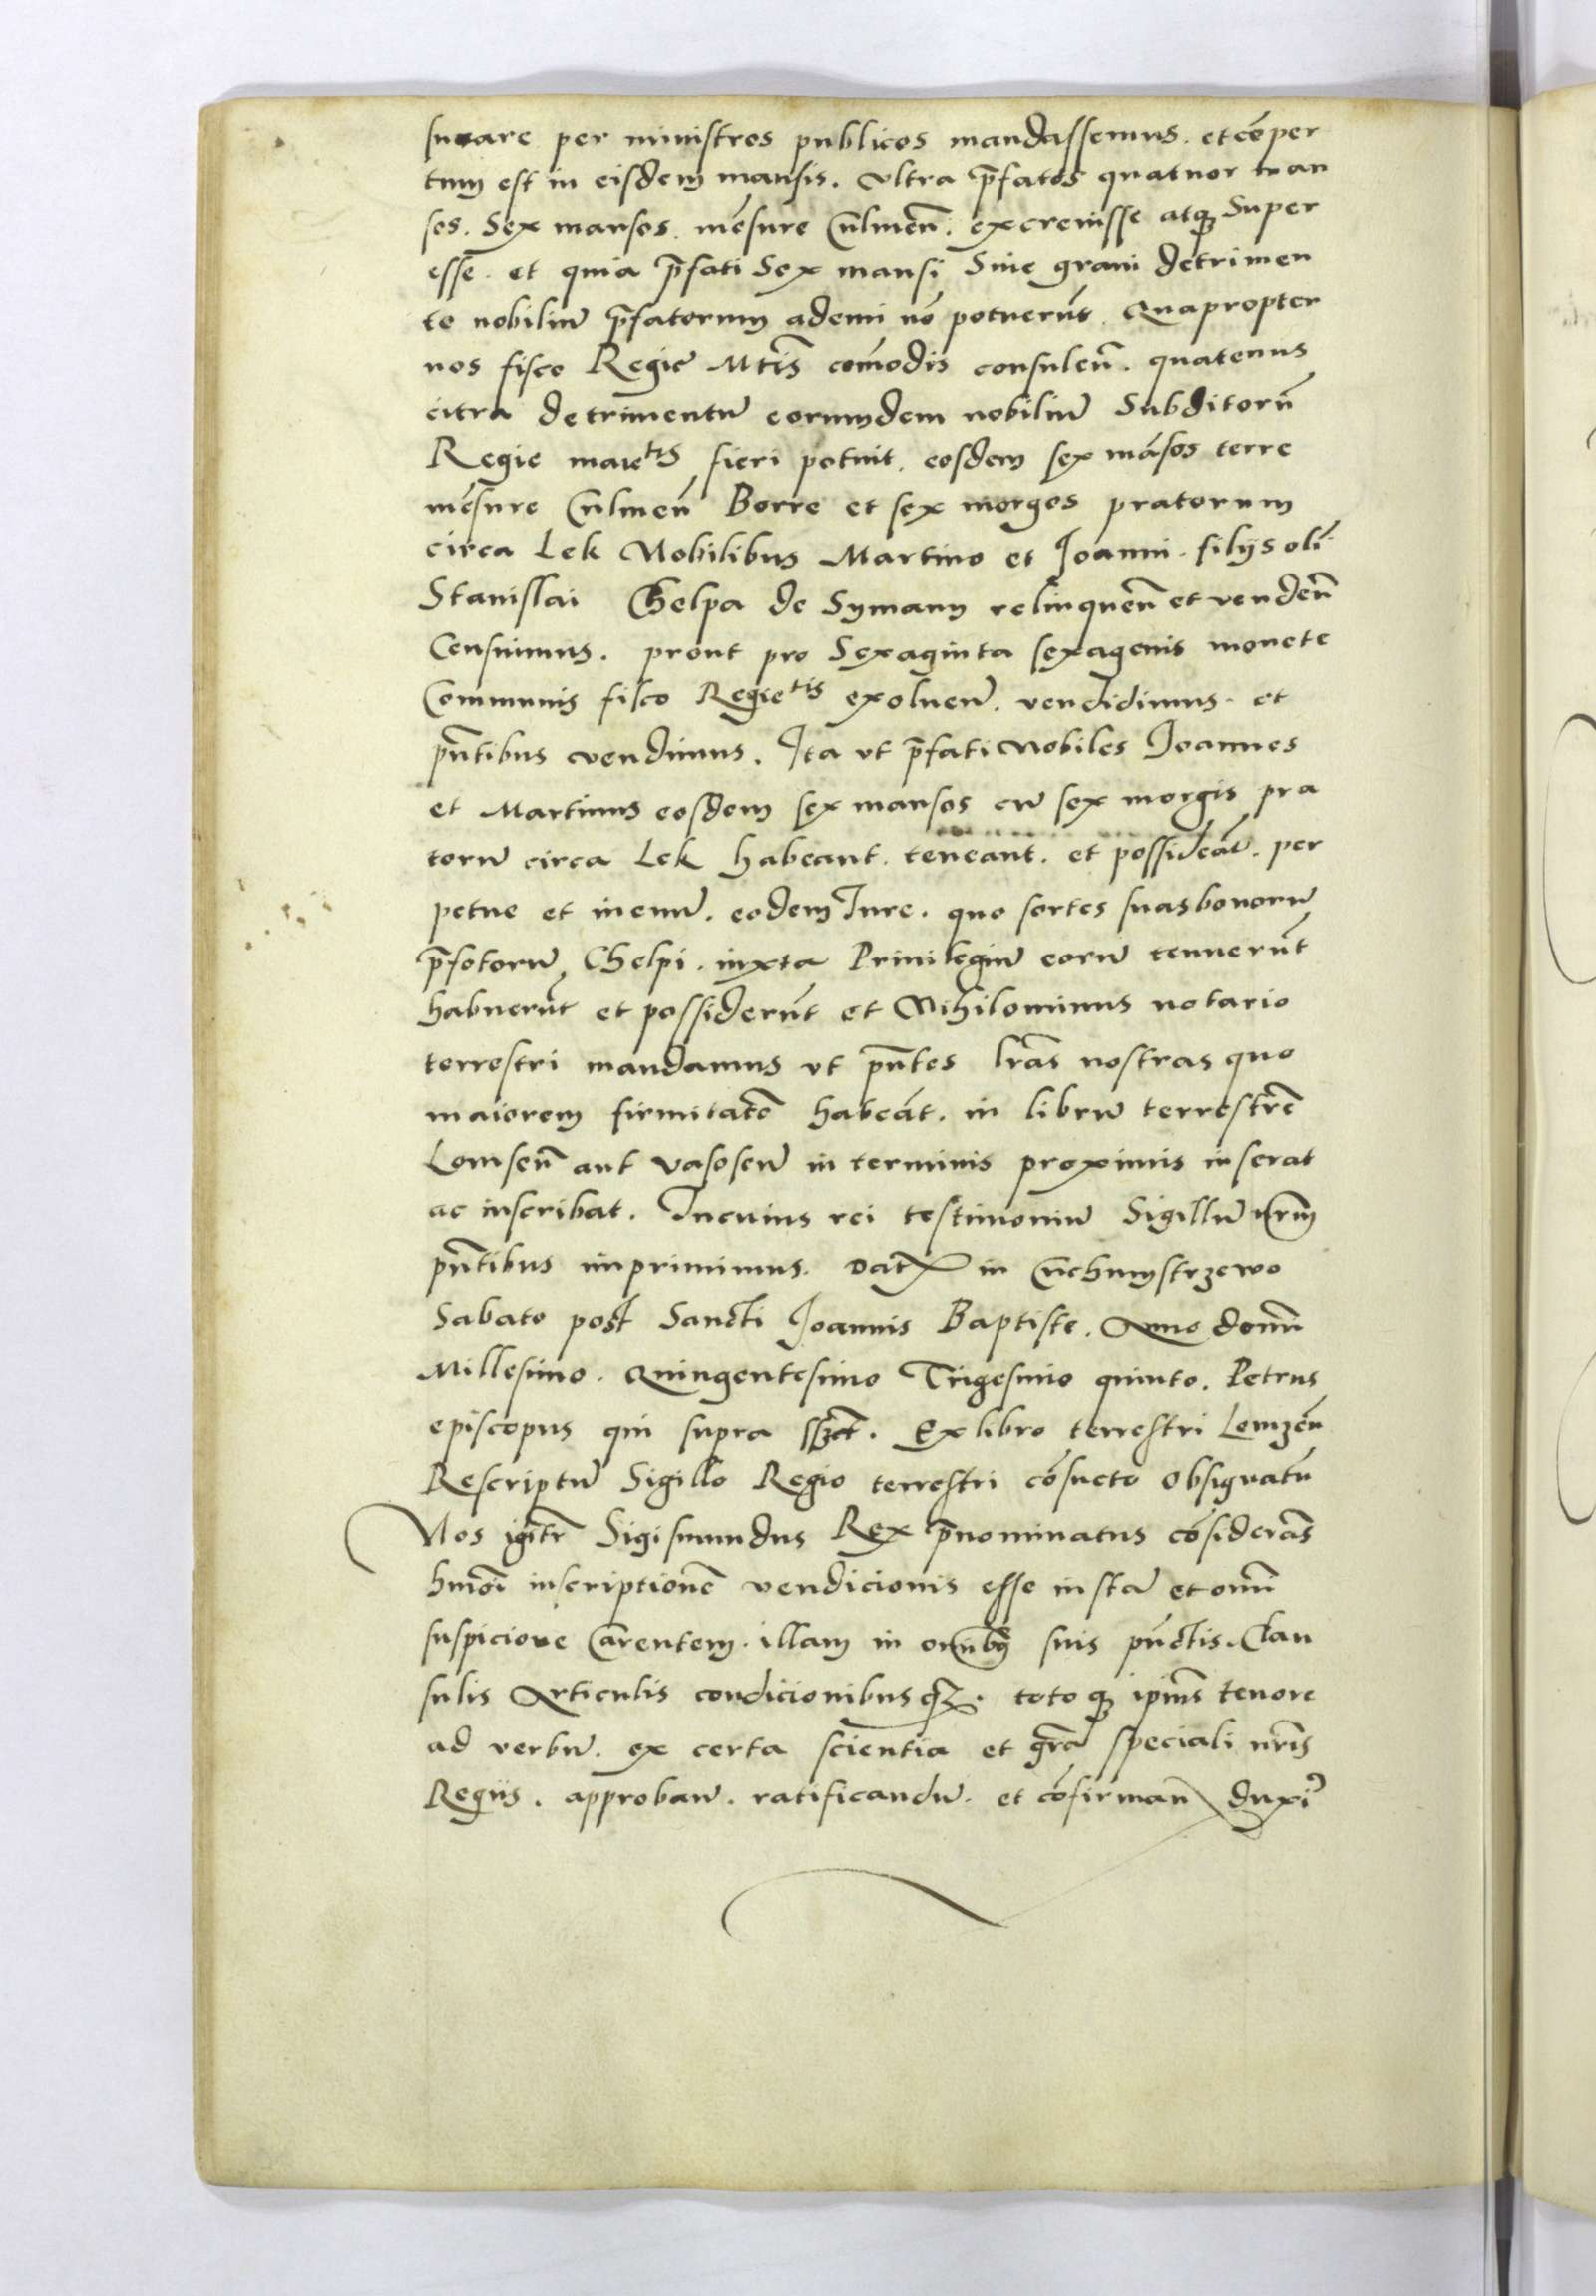 surare per ministros publicos mandassemus. et cōper
tum est in eisdem mansis. vltra p̄fatos quatuor man
sos. Sex mansos. mēsure Culmeñ. excreuisse atq̨ Super
esse. et quia p̄fati Sex mansi Sine graui detrimen
to nobiliū p̄fatorum ademi nō potuerūt. Quapropter
nos fisco Regie Mtis̄ comōdis consuleñ. quatenus
citra detrimentū eorumdem nobiliū Subditorū
Regie maietis fieri potuit. eosdem sex māsos terre
mēsure Culmeñ Borre et sex morgos pratorum
circa Lek Nobilibus Martino et Joanni. filijs olī
Stanislai Chelpa de Symany relinqueñ et vendeñ
Censuimus. prout pro Sexaginta sexagenis monete
Communis fisco Regietis exoluenꝰ. vendidimus. et
pn̄tibus vendimus. Ita vt p̄fati Nobiles Joannes
et Martinus eosdem sex mansos cū sex morgis pra
torū circa Lek habeant. teneant. et possideāt. per
petue et in euū. eodem Iure. quo sortes suas bonorū
p̄fotorū Chelpi. iuxta Priuilegiū eorū tenuerūt
habuerūt et possiderūt et Nihilominus notario
terrestri mandamus vt pn̄tes lrās nostras quo
maiorem firmitatē habeāt. in librū terrestrē
Lomseñ aut vasoseñ in terminis proximis inserat
ac inscribat. In cuius rei testimoniū Sigillū nr̄m
pn̄tibus imprimimus. Dat in Cuchmystrzewo
Sabato post Sancti Joannis Baptiste. Anno domī
Millesimo. Quingentesimo Trigesimo quinto. Petrus
episcopus qui supra sszt. Ex libro terrestri Lomzeñ
Rescriptū Sigillo Regio terrestri cōsueto obsignatū
Nos igitr̄ Sigismundus Rex p̄nominatus cōsiderās
hmōi inscriptionē vendicionis esse iustā et omī
suspicione Carentem. illam in omībus suis pūctis. Clau
sulis Articulis condicionibusqȝ. toto q̨ ipiūs tenore
ad verbū. ex certa scientia et grā speciali nr̄is
Regiis. approbanꝰ. ratificandū. et cōfirmañ duxiꝰ